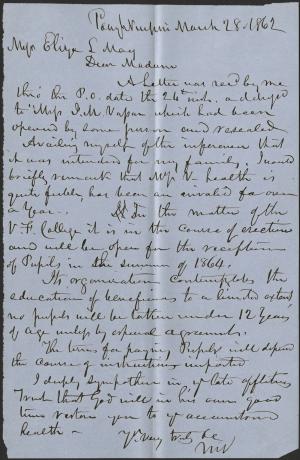 Po'keepsie March 28. 1862
Miss Eliza L May
Dear Madam
A letter was recd by me
thro' our P.O. date the 24th inst. addressed
to "Miss I. M. Vassar which had been
opened by some person and resealed
Availing myself of the inference that
it was intended for my family, I would
briefly remark that Miss V. health is
quite feeble, has been an invalid for over
a Year. In the matter of the
V. F. College it is in the course of erection
and will be open for the reception
of Pupils in the summer of 1864.
Its organization contemplates the
education of beneficiaries to a limited extent
no pupils will be taken under 12 Years
of age unless by especial agreements.
The terms for paying Pupils will depend
the course of instructions imparted
I deeply sympathise in y late affliction
Trust that God will in his own good
time restore you to y accustomed
health -
Yr. Very truly &c
MV